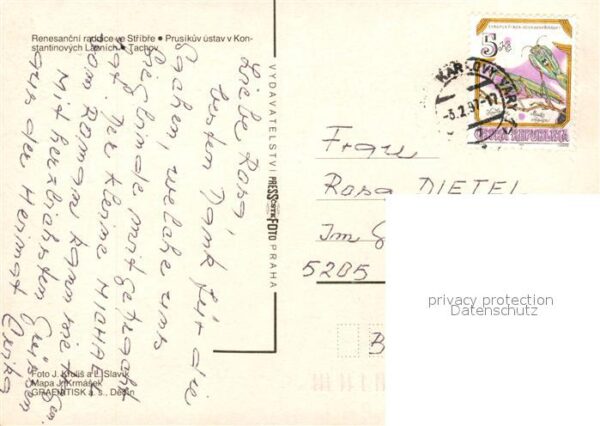 Renesanční radnice ve Stříbře • Prusíkův ústav v Kon-
stantinových Lázních • Tachov
Liebe Rosa,
besten Dank für die
Sachen, welche uns
Sieglinde mitgebracht
hat. Der kleine MICHAEL
vom ROMAN kann sie
Mit herzlichsten Grüssen
aus der Heimat Erika
Foto J. Kruliš a E. Slavík
Mapa J. Krmášek
GRAFMTISK a. s., Děčín
VYDAVATELSTVÍ PRESSFOTO PRAHA
5 Kč
KARLOVY VARY
ČESKÁ REPUBLIKA
Frau
Rosa DIETEL
Im
5205
privacy protection
Datenschutz
B